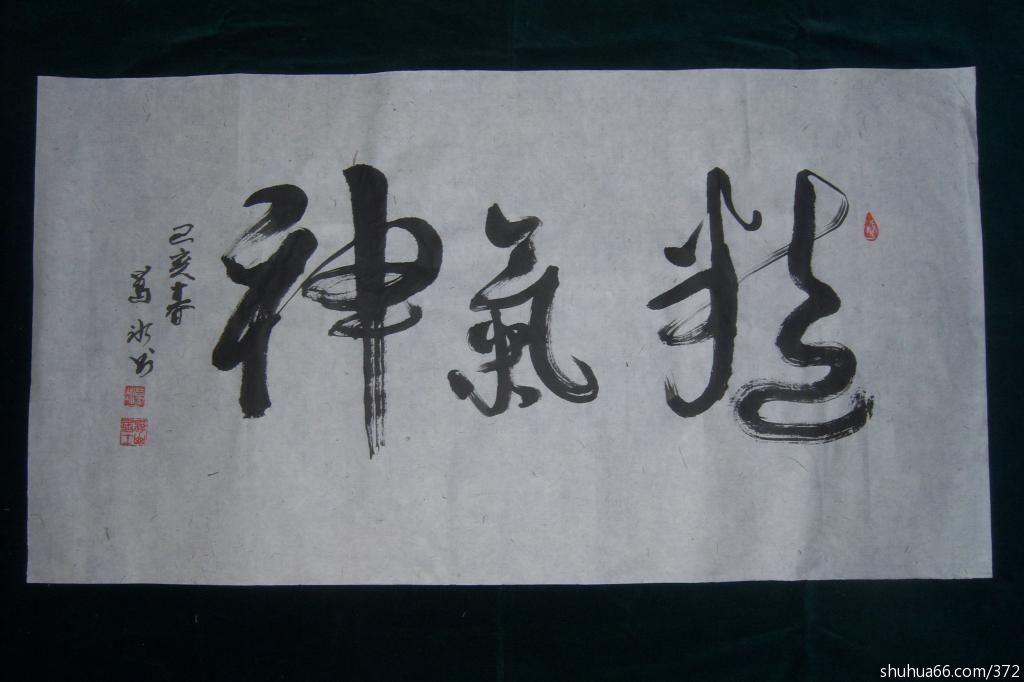 精氣神
己亥春
葛冰书
shuhua66.com/372